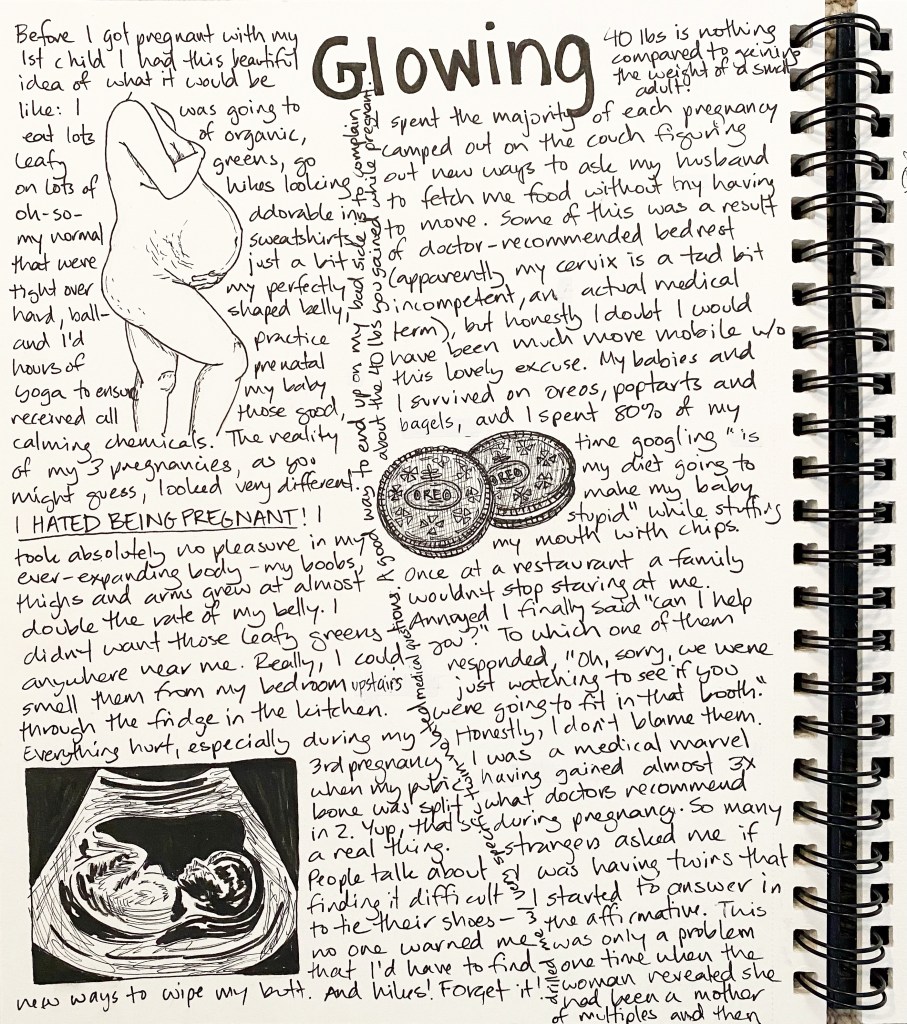 Glowing
Before I got pregnant with my
1st child I had this beautiful
idea of what it would be
like: I was going to
eat lots of organic,
leafy greens, go
on lots of hikes looking
oh-so- adorable in
my normal sweatshirts
that were just a bit
tight over my perfectly
hard, ball- shaped belly,
and I'd practice
hours of prenatal
yoga to ensure my baby
received all those good,
calming chemicals. The reality
of my 3 pregnancies, as you
might guess, looked very different.
I HATED BEING PREGNANT! I
took absolutely no pleasure in my
ever-expanding body - my boobs,
thighs and arms grew at almost
double the rate of my belly. I
didn't want those leafy greens
anywhere near me. Really, I could
smell them from my bedroom upstairs
through the fridge in the kitchen.
Everything hurt, especially during my
3rd pregnancy
when my pubic
bone was split
in 2. Yup, that's
a real thing.
People talk about
finding it difficult
to tie their shoes -
no one warned me
that I'd have to find
new ways to wipe my butt. And hikes! Forget it!
I spent the majority of each pregnancy
camped out on the couch figuring
out new ways to ask my husband
to fetch me food without my having
to move. Some of this was a result
of doctor-recommended bedrest
(apparently my cervix is a tad bit
incompetent, an actual medical
term), but honestly I doubt I would
have been much more mobile w/o
this lovely excuse. My babies and
I survived on oreos, poptarts and
bagels, and I spent 80% of my
time googling "is
my diet going to
make my baby
stupid" while stuffing
my mouth with chips.
OREO
OREO
Once at a restaurant a family
wouldn't stop staring at me.
Annoyed I finally said "can I help
you?" To which one of them
responded, "Oh, sorry, we were
just watching to see if you
were going to fit in that booth."
Honestly, I don't blame them.
I was a medical marvel
having gained almost 3x
what doctors recommend
during pregnancy. So many
strangers asked me if
I was having twins that
I started to answer in
the affirmative. This
was only a problem
one time when the
woman revealed she
had been a mother
of multiples and then
drilled me w/ very specific twin-related medical questions. A good way to end up on my bad side is to complain
about the 40 lbs you gained while pregnant.
40 lbs is nothing
compared to gaining
the weight of a small
adult!